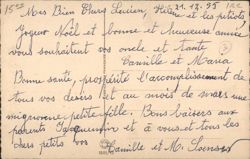 15 21.12.35
Mes Bien Chers Lucien, Hélène et les petits
Joyeux Noël et bonne et heureuse année
vous souhaitent vos oncle et tante
Camille et Maria
Bonne santé, prospérité l'accomplissement de
tous vos désirs et au mois de mars une
mignonne petite fille. Bons baisers aux
parents et à vous et tous les
chers petits vos Camille et M.